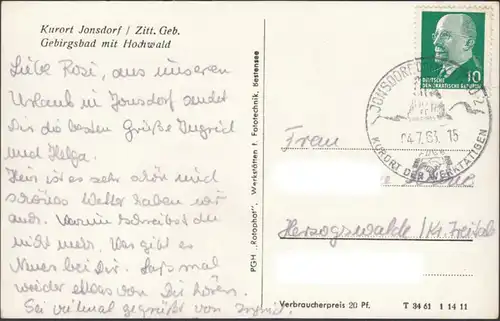 Kurort Jonsdorf / Zitt. Geb.
Gebirgsbad mit Hochwald
Liebe Rosi, aus unseren
Urlaub in Jonsdorf sendet
Dir die besten Grüße Ingrid
und Helga.
Hier ist es sehr schön und
schönes Wetter haben wir
auch. Warum schreibst du
nicht mehr. Was gibt es
Neues bei Dir. Laß mal
wieder etwas von Dir hören.
Sei vielmal gegrüßt von Ingrid.
PGH „Rotophot", Werkstätten f. Fototechnik, Bestensee
10
DEUTSCHE
DEMOKRATISCHE REPUBLIK
JONSDORF
KURORT DER WERKTÄTIGEN
Frau
Herzogswalde / Kr. Freital
Verbraucherpreis 20 Pf.
T 34 61 1 14 11